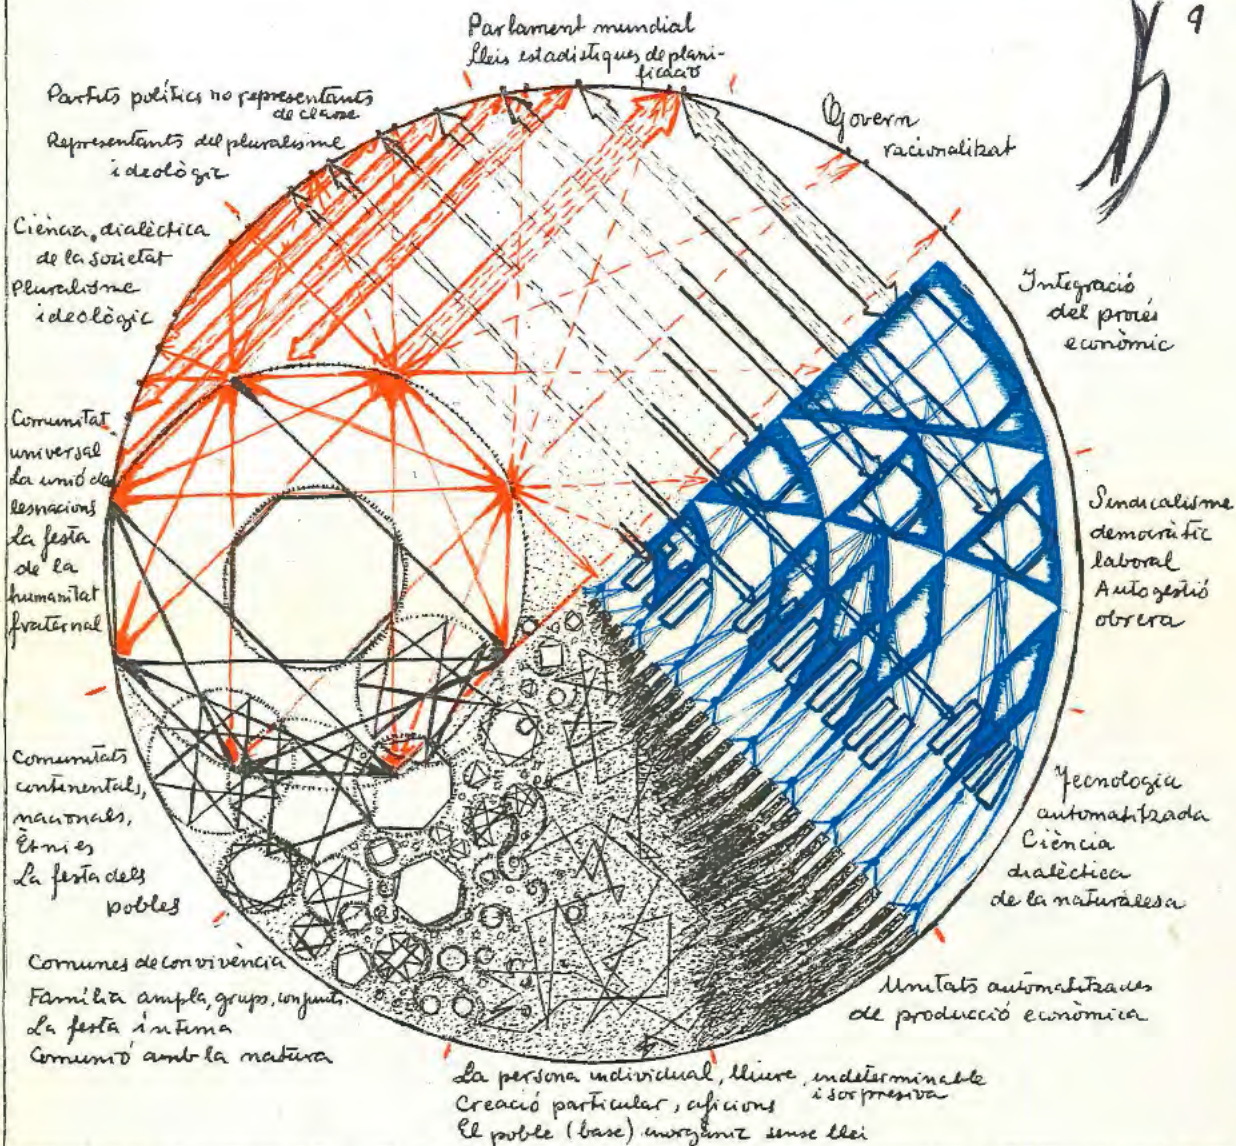 9
Parlament mundial
Lleis estadístiques de plani-
ficació
Partits polítics no representants
de classe
Representants del pluralisme
ideològic
Govern
racionalitzat
Ciència dialèctica
de la societat
Pluralisme
ideològic
Integració
del procés
econòmic
Comunitat
universal
La unió de
les nacions
La festa
de la
humanitat
fraternal
Sindicalisme
democràtic
laboral
Autogestió
obrera
Comunitats
continentals,
nacionals,
Ètnies
La festa dels
pobles
Tecnologia
automatitzada
Ciència
dialèctica
de la naturalesa
Comunes de convivència
Família ampla, grups, conjunts.
La festa íntima
Comunió amb la natura
Unitats automatitzades
de producció econòmica
La persona individual, lliure, indeterminable
i sorpresiva
Creació particular, aficions
El poble (base) inorgànic sense llei